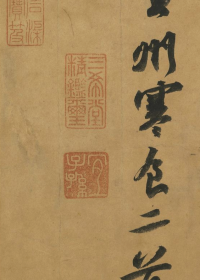 州寒食二首
三希堂
精鑑璽
宜
子孫